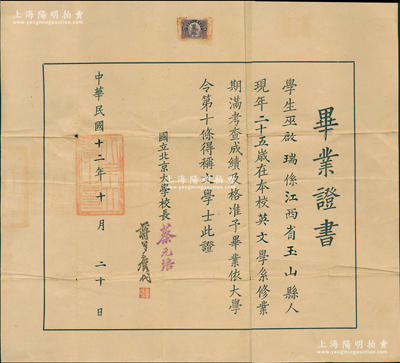 上海陽明拍賣
www.yangmingauction.com
上海陽明拍賣
www.yangmingauction.com
畢業證書
學生巫啟瑞係江西省玉山縣人
現年二十五歲在本校英文學系修業
期滿考查成績及格准予畢業依大學
令第十條得稱文學士此證
國立北京大學校長蔡元培
蔣夢麐代
中華民國十二年十月二十日